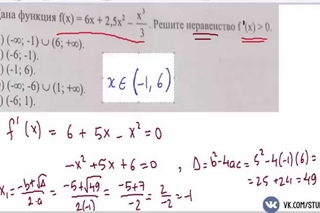 дана функция f(x) = 6x + 2,5x² − x³/3. Решите неравенство f'(x) > 0.
) (-∞; -1) ∪ (6; +∞).
) (-1; 6).
) (-∞; -6) ∪ (1; +∞).
) (-6; 1).
x ∈ (-1, 6)
f'(x) = 6 + 5x - x² = 0
-x² + 5x + 6 = 0 , D = b² - 4ac = 5² - 4(-1)(6) =
= 25 + 24 = 49
x₁ = (-b+√Δ)/(2·a) = (-5+√49)/(2(-1)) = (-5+7)/(-2) = 2/(-2) = -1
VK.COM/STU